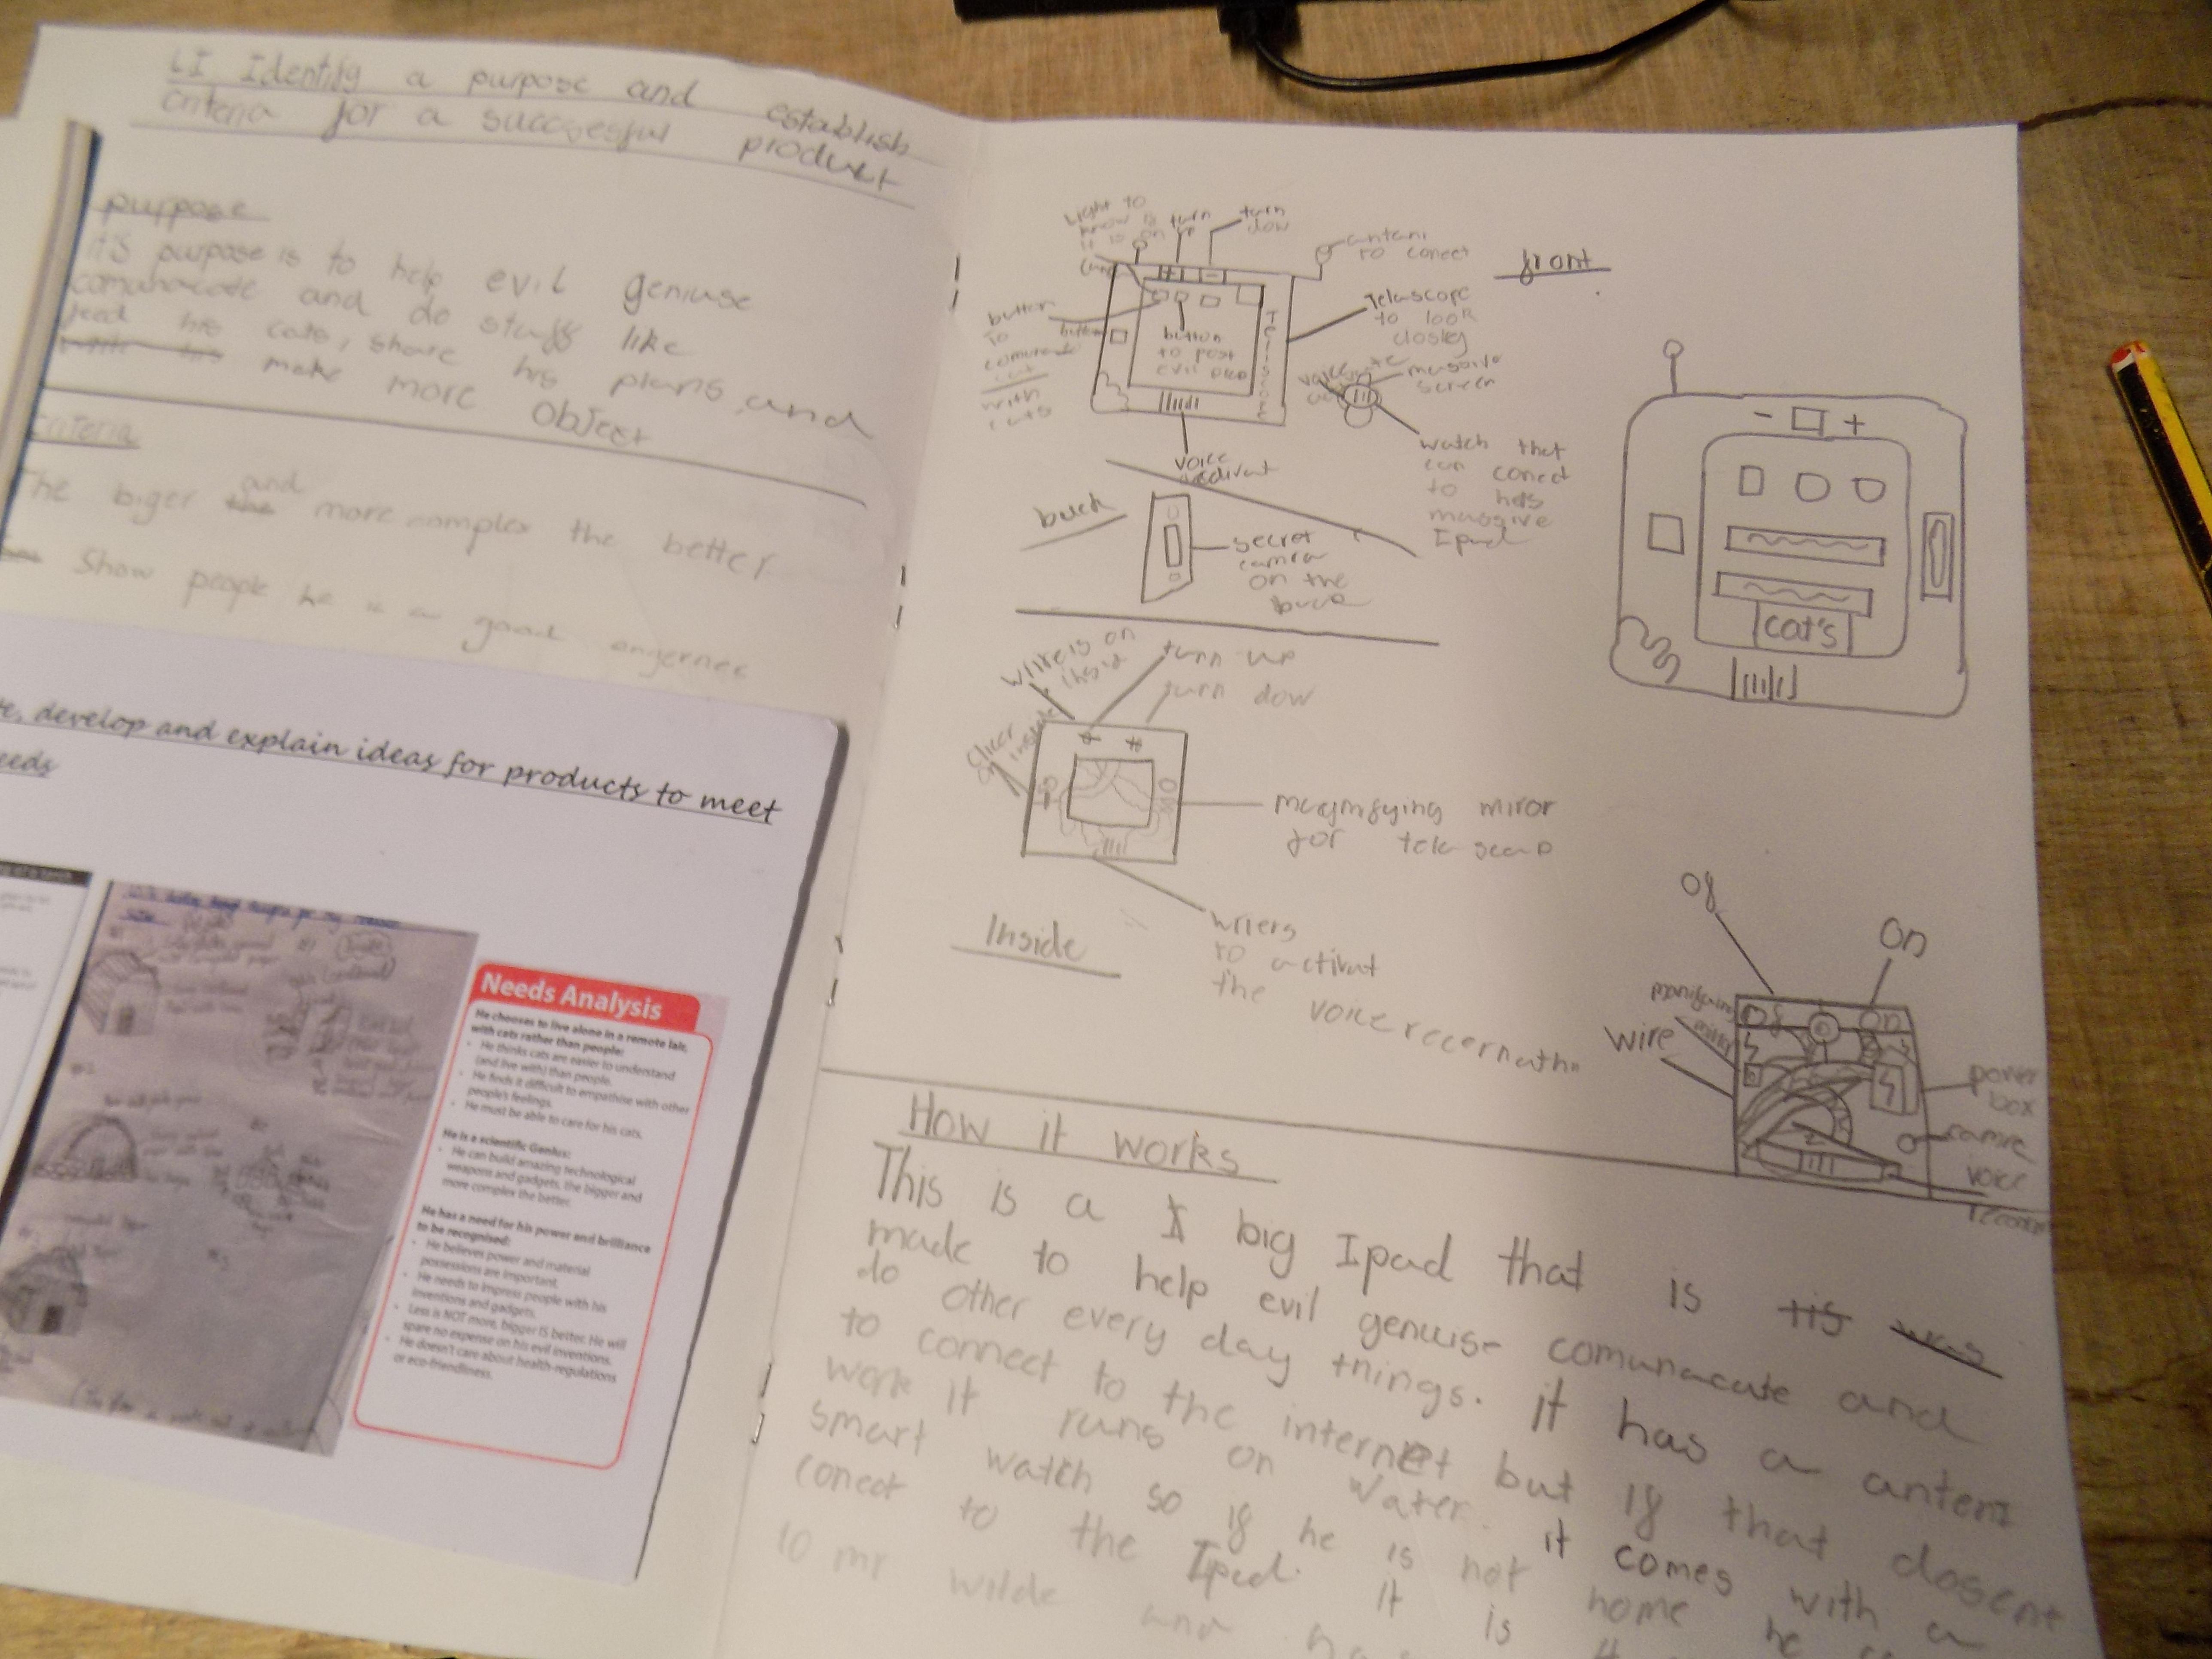 LI Identify a purpose and establish
criteria for a succesful product
purpose
it's purpose is to help evil geniuse
comunacate and do stuff like
feed his cats, share his plans, and
make more object
criteria
The biger and more complex the better
Show people he is a good
develop and explain ideas for products to meet
eeds
Needs Analysis
He chooses to live alone in a remote lair,
with cats rather than people:
• He thinks cats are easier to understand
(and live with) than people.
• He finds it difficult to empathise with other
people's feelings.
• He must be able to care for his cats.
He is a scientific Genius:
• He can build amazing technological
weapons and gadgets, the bigger and
more complex the better.
He has a need for his power and brilliance
to be recognised:
• He believes power and material
possessions are important.
• He needs to impress people with his
inventions and gadgets.
• Less is NOT more, bigger IS better. He will
spare no expense on his evil inventions.
• He doesn't care about health-regulations
or eco-friendliness.
Light to
know is
it is on
turn
up
turn
dow
antani
to conect
front
button
to
with
cats
button
button
to post
evil
Teliscope
Telascope
to look
closley
massive
screen
voice
watch that
can conect
to his
massive
Ipad
voice
activat
back
secret
camra
on the
back
- +
cat's
wire is on
insid
turn up
turn dow
magnifying miror
for telascop
wriers
to activat
the voice recernathn
Inside
of
on
of
on
wire
power
box
camre
voice
How it works
This is a big Ipad that is tis was
made to help evil genuise comunacate and
do other every day things. it has a anten
to connect to the internet but if that dosent
work it runs on water. it comes with a
smart watch so if he is not home he
conect to the Ipad. it is
to mr wilde and